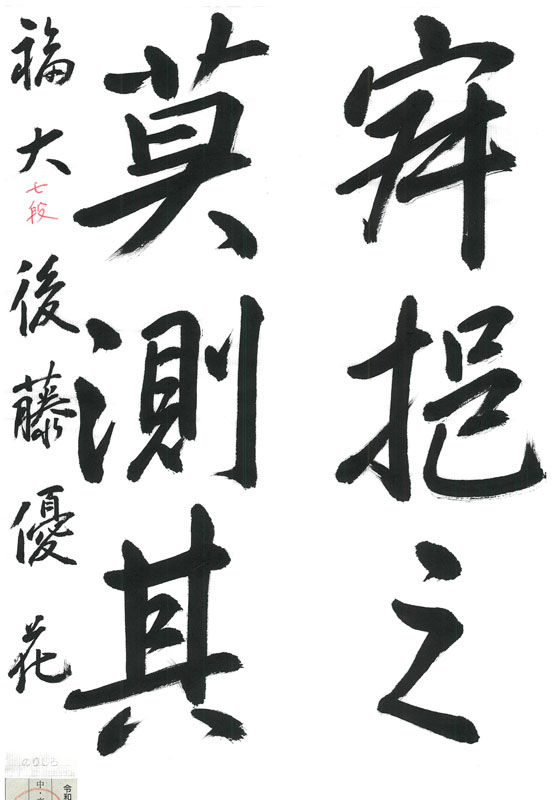 挹之
莫測其
福大 七段 後藤優花
のりしろ
令和
中・